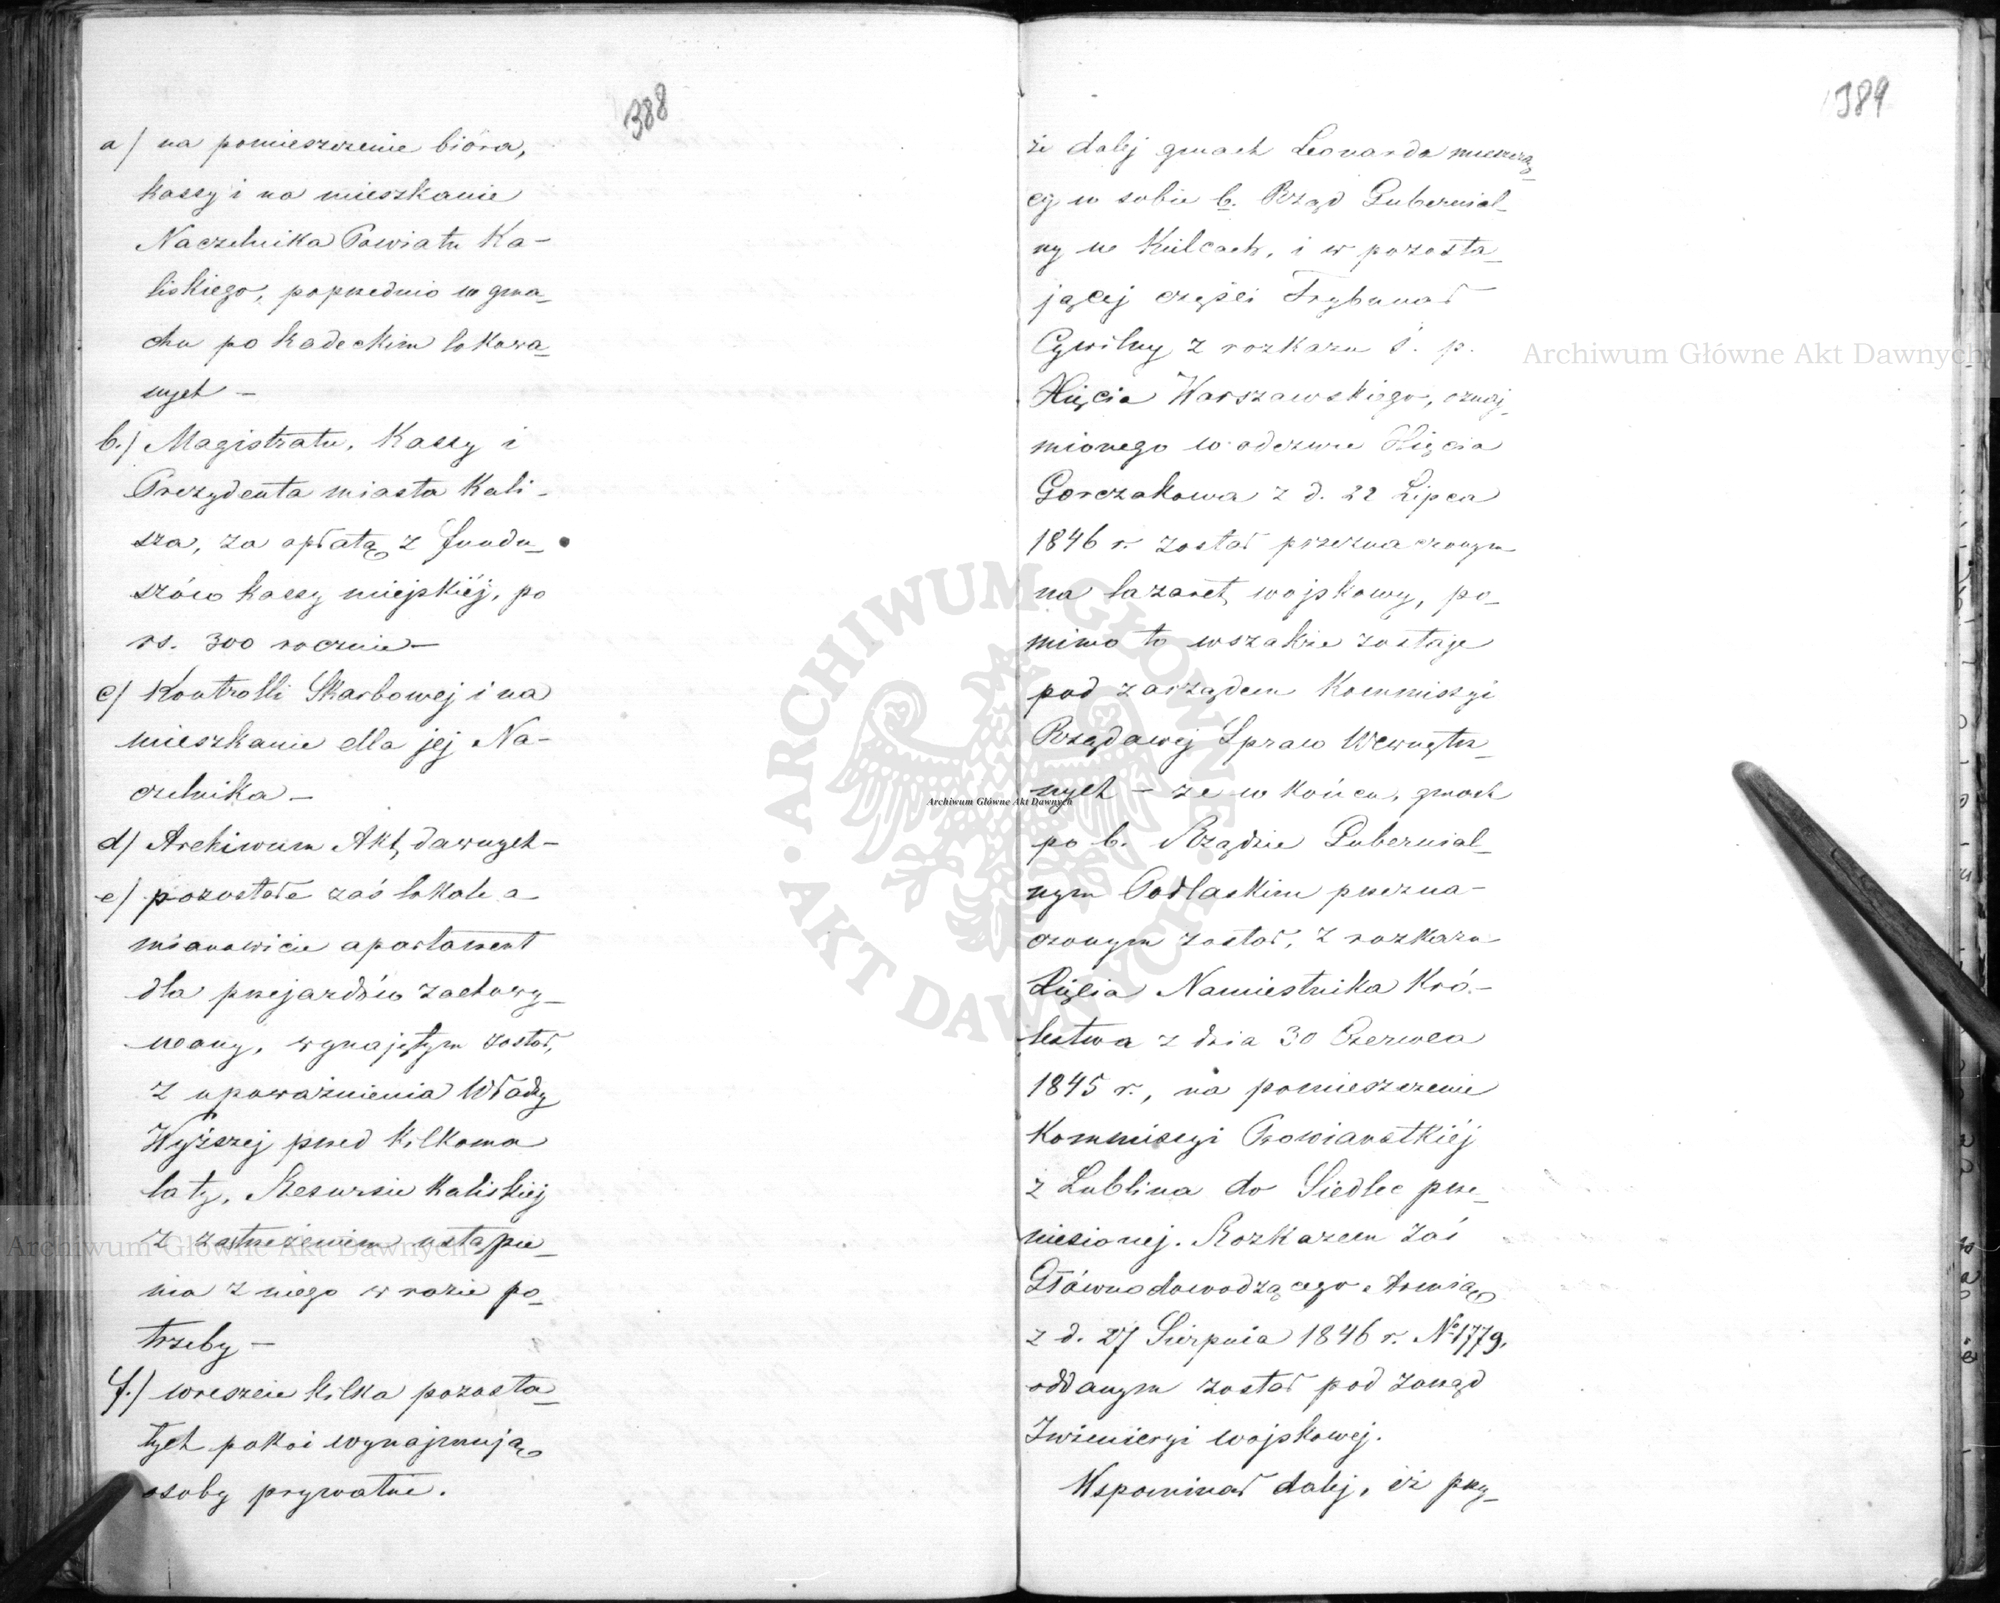 388
a/ na pomieszczenie bióra,
kassy i na mieszkanie
Naczelnika Powiatu Ka-
liskiego, poprzednio w gma-
chu po kadeckim lokowa-
nych -
b./ Magistratu, Kassy i
Prezydenta miasta Kali-
sza, za opłatą z fundu-
szów kassy miejskiéj, po
rs. 300 rocznie -
c/ Kontrolli Skarbowej i na
mieszkanie dla jej Na-
czelnika -
d/ Archiwum Akt, dawnych -
e/ pozostałe zaś lokale a
mianowicie apartament
dla przejazdów zachowy-
wany, wynajętym został,
z upoważnienia Władzy
Wyższej przed kilkoma
laty, Resursie Kaliskiej
z zastrzeżeniem ustąpie-
nia z niego w razie po-
trzeby -
f./ wreszcie kilka pozosta-
łych pokoi wynajmują
osoby prywatne.
389
że dalej gmach Leonarda mieszczą-
cy w sobie b. Rząd Gubernial-
ny w Kielcach, i w pozosta-
jącej części Trybunał
Cywilny z rozkazu ś. p.
Xięcia Warszawskiego, oznaj-
mionego w odezwie Xięcia
Gorczakowa z d. 22 Lipca
1846 r. został przeznaczonym
na lazaret, wojskowy, po-
mimo to wszakże zostaje
pod zarządem Kommissyi
Rządowej Spraw Wewnętrz-
nych - że w końcu, gmach
po b. Rządzie Gubernial-
nym Podlaskim przezna-
czonym został, z rozkazu
Xięcia Namiestnika Kró-
lestwa z dnia 30 Czerwca
1845 r., na pomieszczenie
Kommissyi Prowiantskiéj
z Lublina do Siedlec prze-
niesionej. Rozkazem zaś
Głównodowodzącego Armią
z d. 27 Sierpnia 1846 r. No 1779,
oddanym został pod zarząd
Inżenieryi wojskowej.
Wspominał dalej, iż przy-
Archiwum Główne Akt Dawnych
Archiwum Główne Akt Dawnych
Archiwum Główne Akt Dawnych
ARCHIWUM GŁÓWNE
AKT DAWNYCH